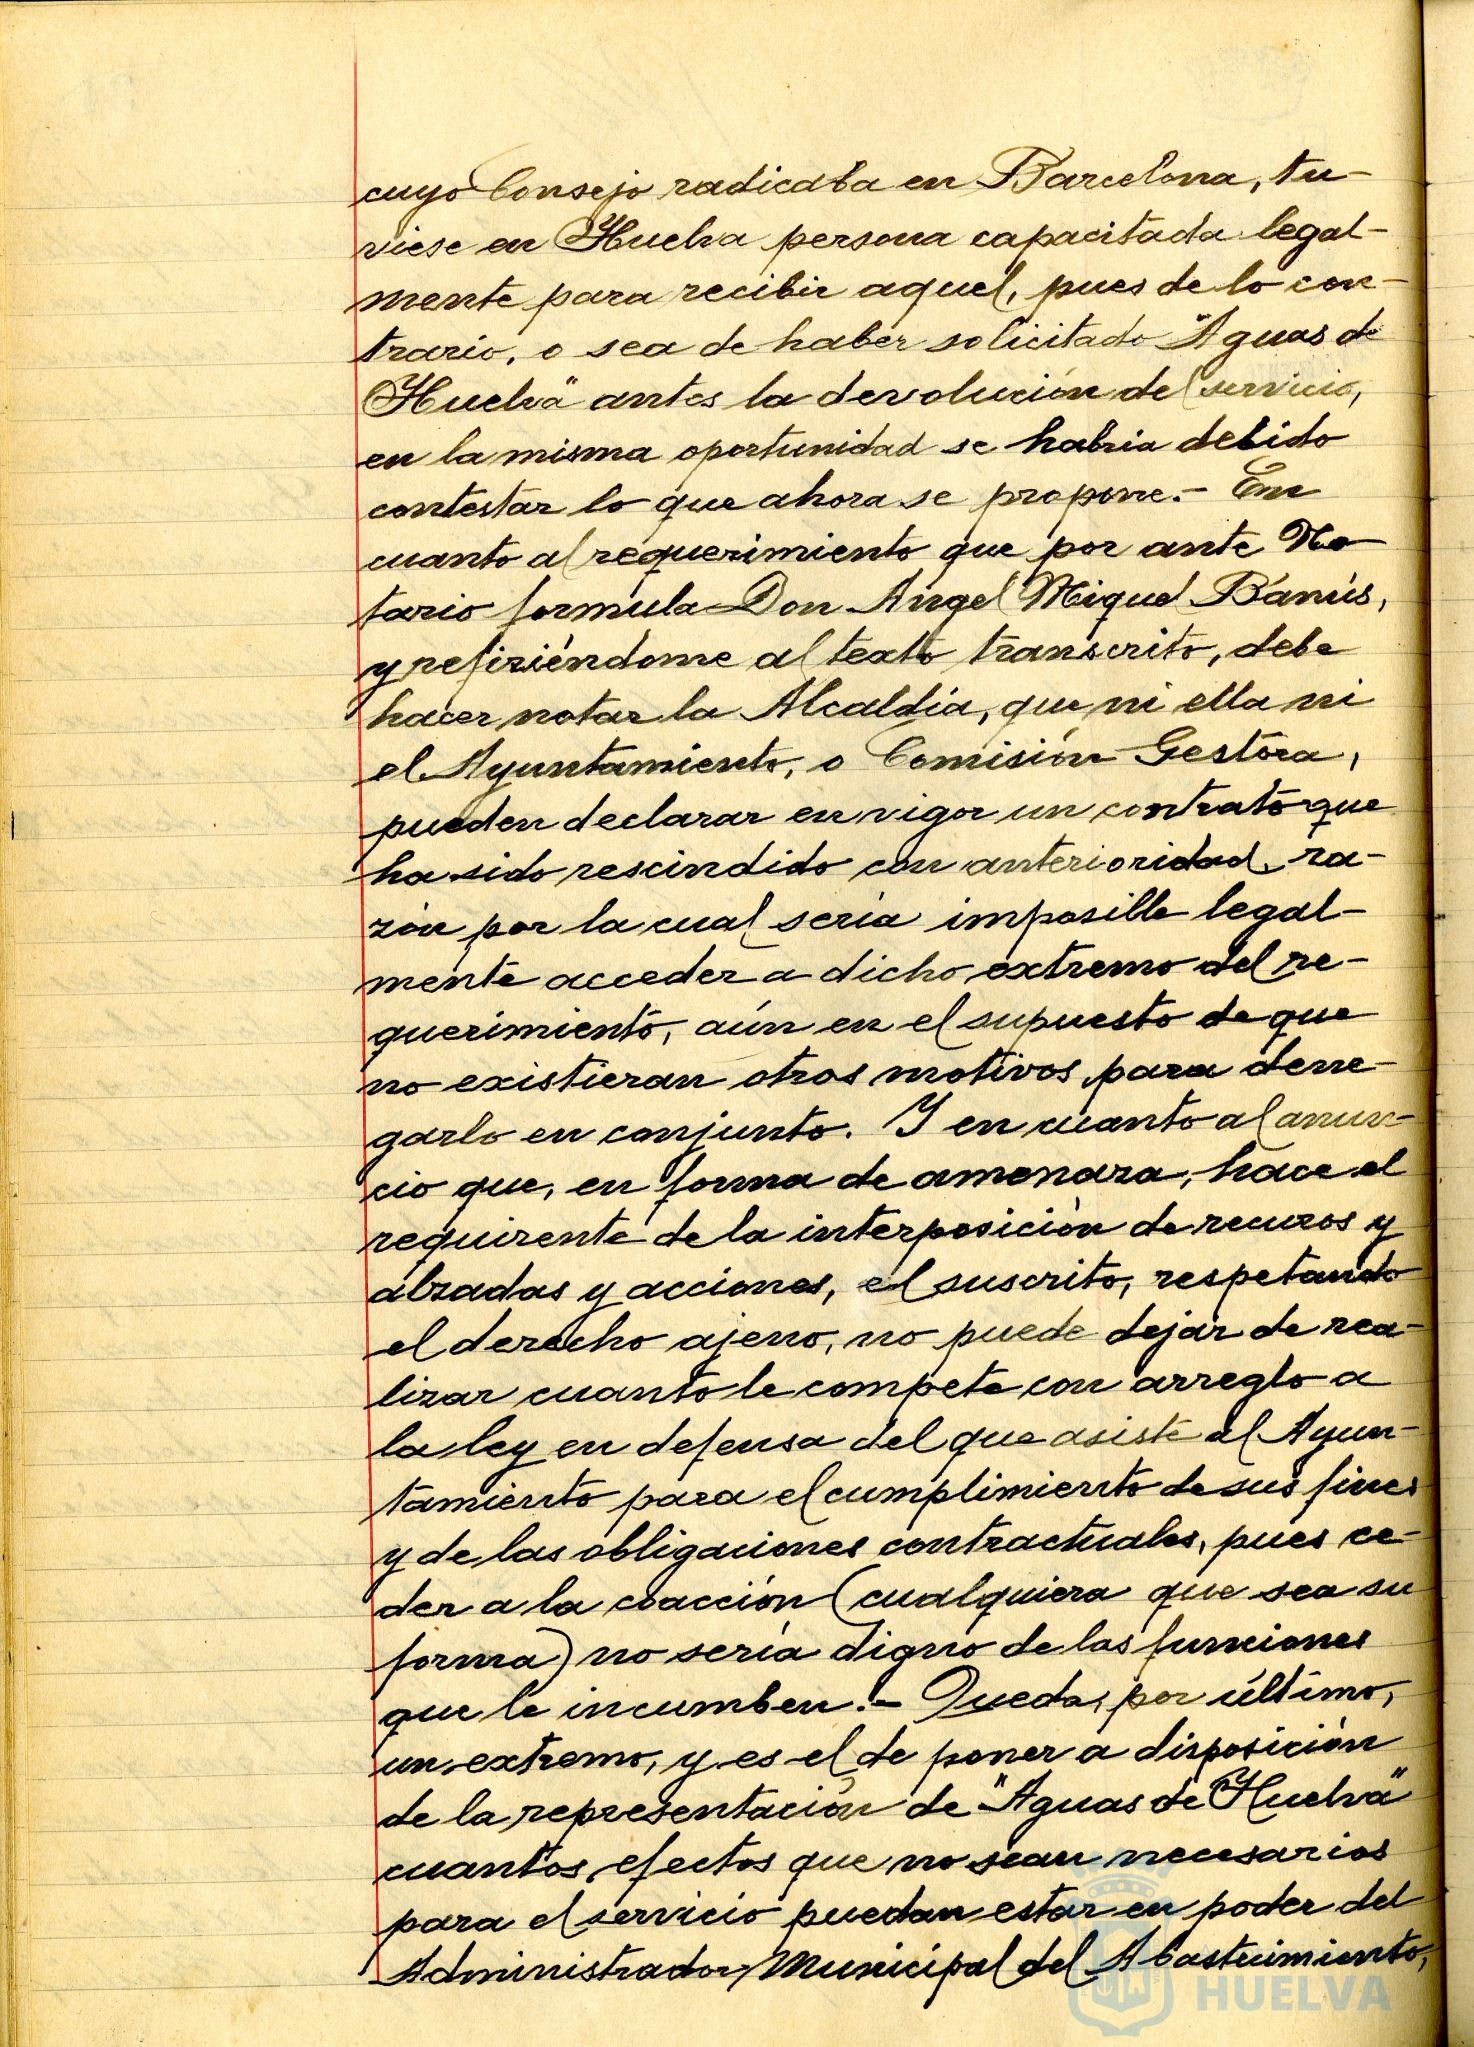 cuyo Consejo radicaba en Barcelona, tu-
viese en Huelva persona capacitada legal-
mente para recibir aquel, pues de lo con-
trario, o sea de haber solicitado "Aguas de
Huelva" antes la devolución del servicio,
en la misma oportunidad se habria debido
contestar lo que ahora se propone.- En
cuanto al requerimiento que por ante No-
tario formula Don Angel Miquel Bánús,
y refiriéndome al texto transcrito, debe
hacer notar la Alcaldía, que ni ella ni
el Ayuntamiento, o Comisión Gestora,
pueden declarar en vigor un contrato que
ha sido rescindido con anterioridad, ra-
zón por la cual sería imposible legal-
mente acceder a dicho extremo del re-
querimiento, aún en el supuesto de que
no existieran otros motivos para dene-
garlo en conjunto. Y en cuanto al anun-
cio que, en forma de amenaza, hace el
requirente de la interposición de recuros y
alzadas y acciones, el suscrito, respetando
el derecho ajeno, no puede dejar de rea-
lizar cuanto le compete con arreglo a
la ley en defensa del que asiste al Ayun-
tamiento para el cumplimiento de sus fines
y de las obligaciones contractuales, pues ce-
der a la coacción (cualquiera que sea su
forma) no sería digno de las funciones
que le incumben.- Queda, por último,
un extremo, y es el de poner a disposición
de la representación de "Aguas de Huelva"
cuantos efectos que no sean necesarios
para el servicio puedan estar en poder del
Administrador Municipal del Abastecimiento,
HUELVA